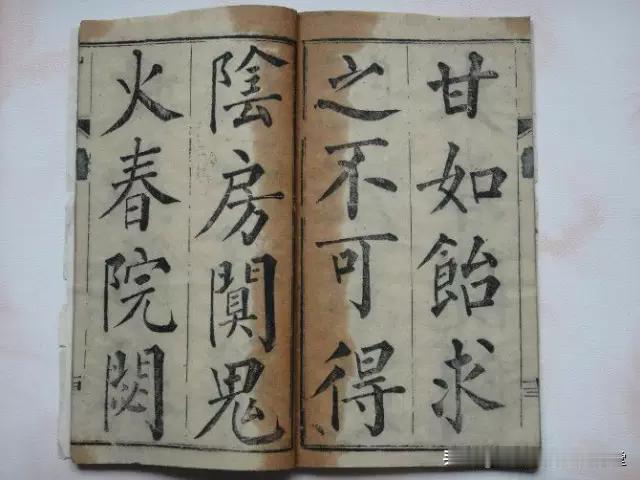 甘如飴求
之不可得
陰房闃鬼
火春院閟